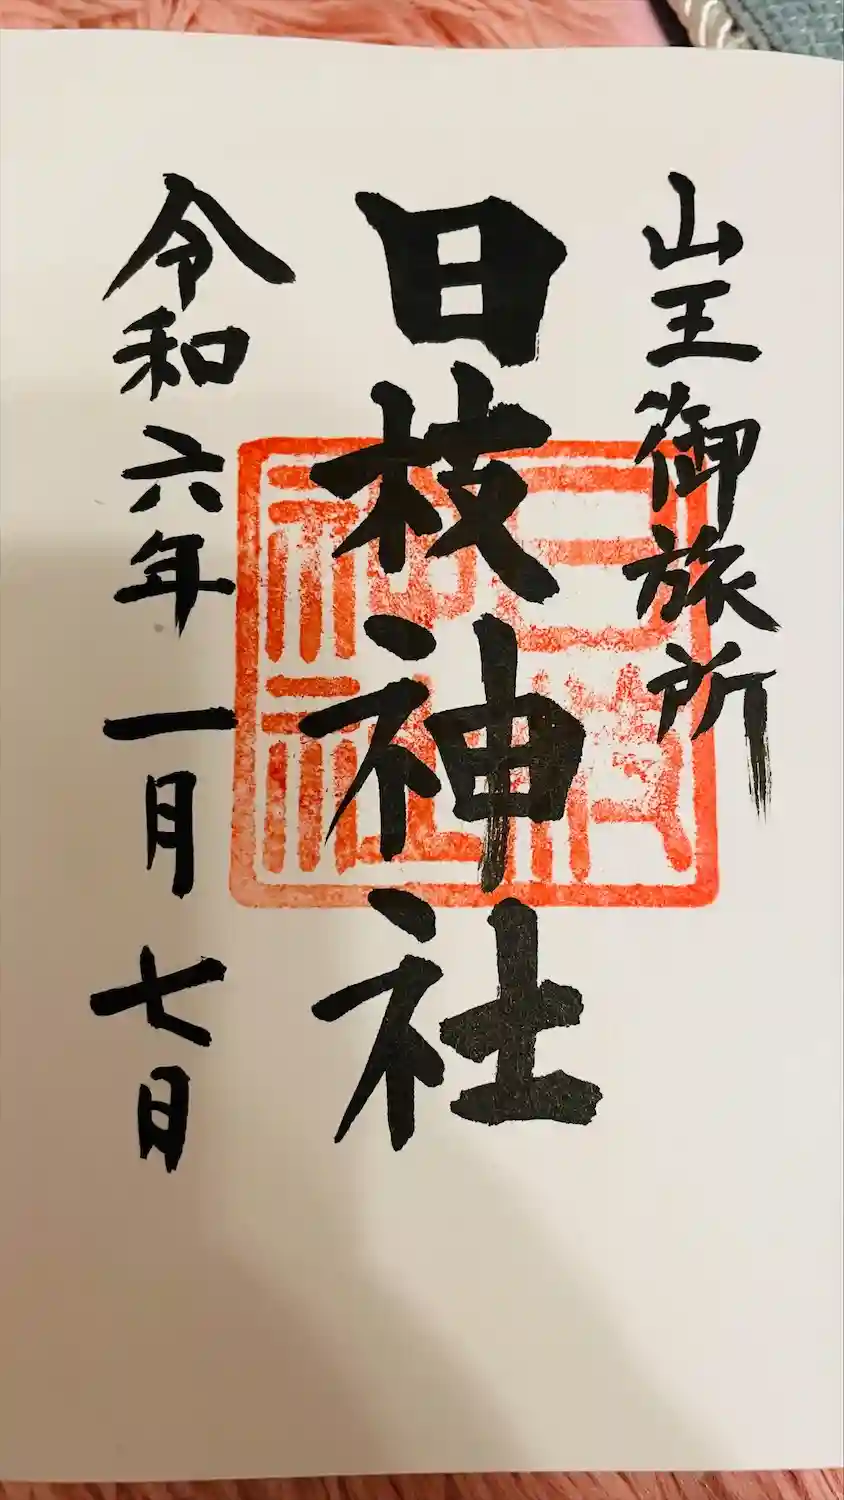 山王御旅所
日枝神社
日枝神社
令和六年一月七日